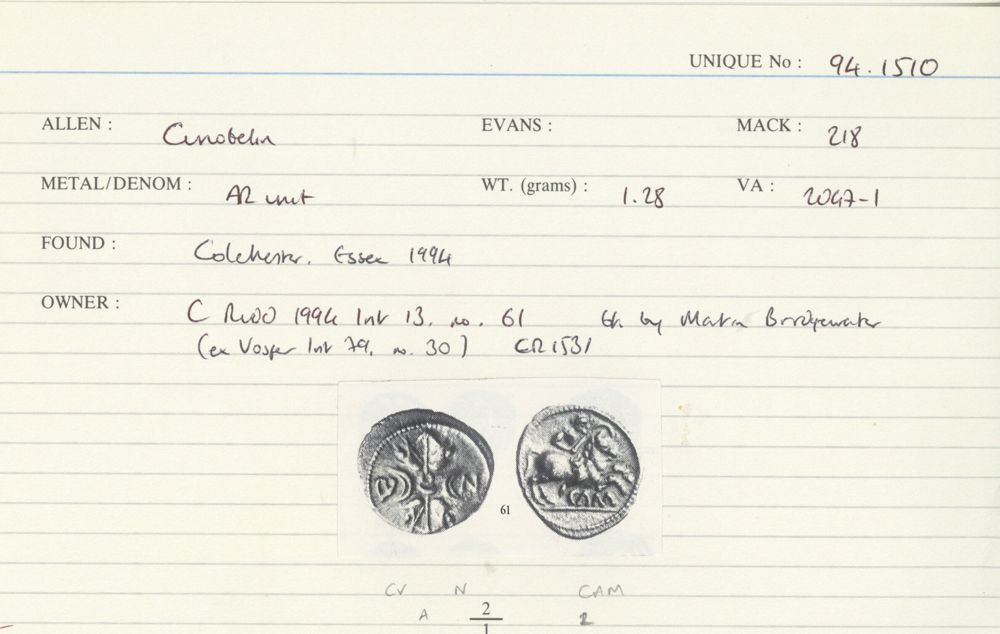 UNIQUE No : 94.1510
ALLEN : Cunobelin EVANS : MACK : 218
METAL/DENOM : AR unit WT. (grams) : 1.28 VA : 2047-1
FOUND : Colchester, Essex 1994
OWNER : C Rudd 1994 list 13, no. 61 by Martin Bridgewater
(ex Vosper list 79, no. 30) CR1531
61
CV N CAM
A 2 2
1